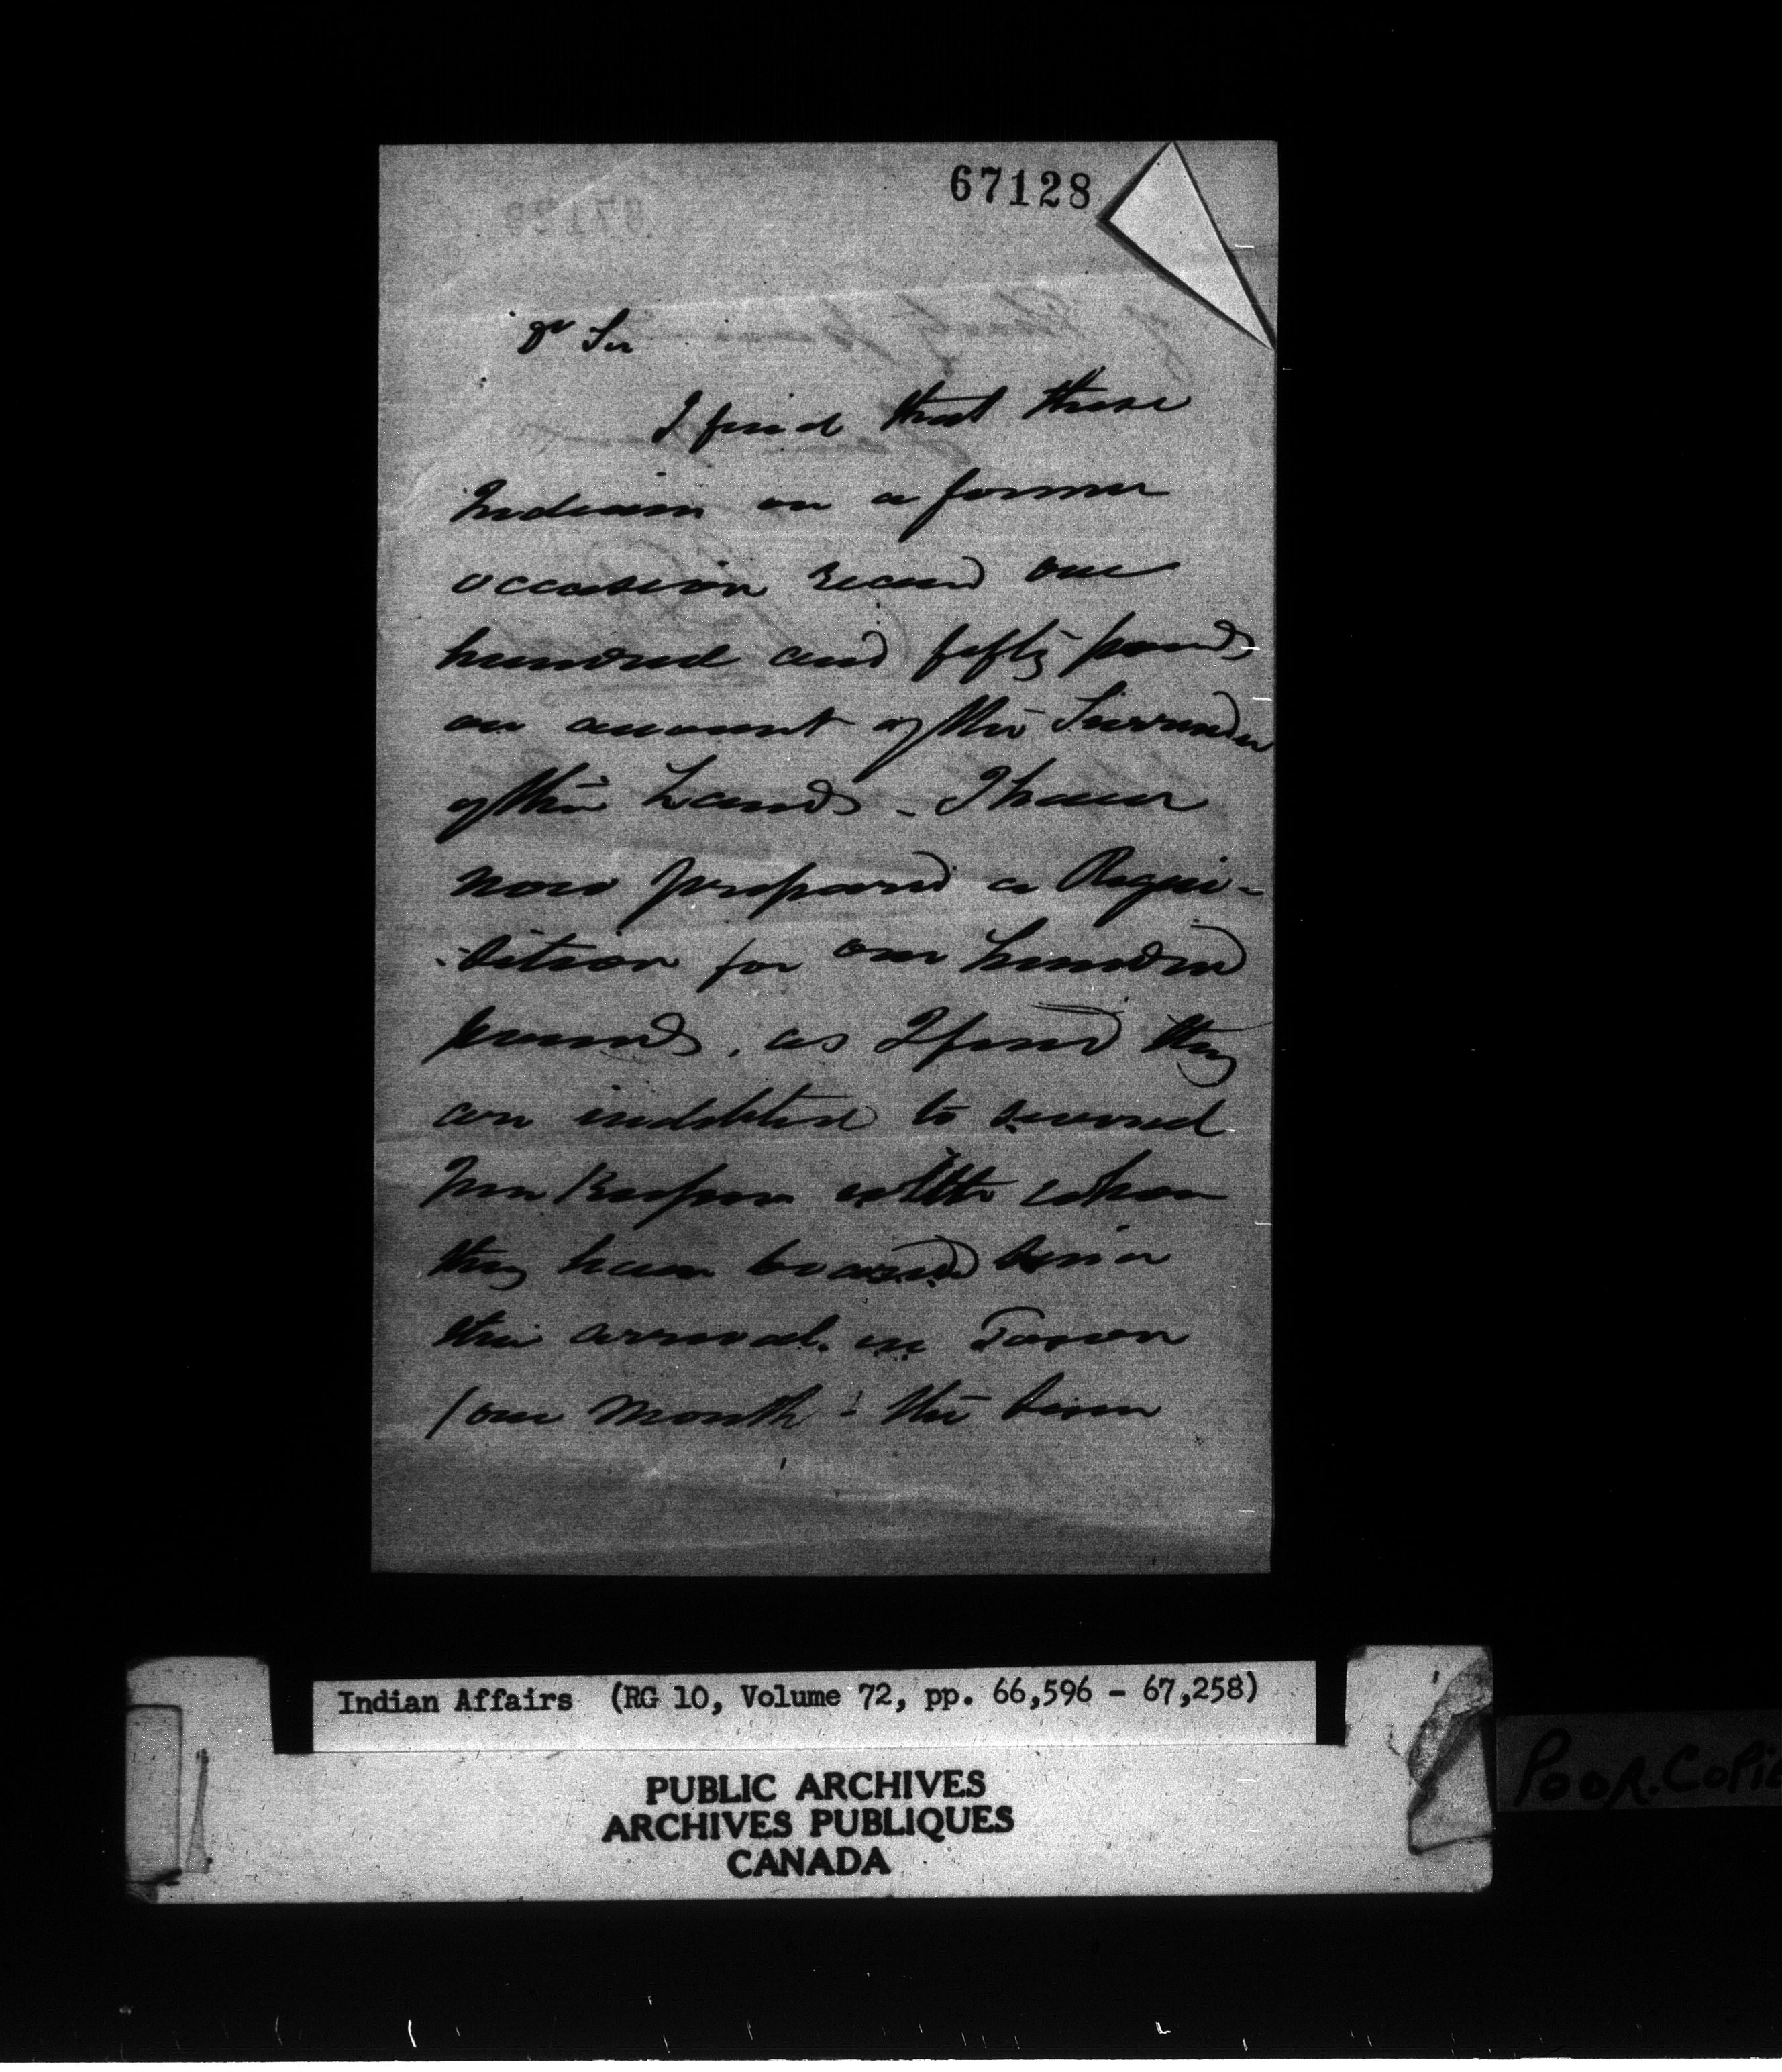 67128
Dr Sir
I find that these
Indians on a former
occasion received one
hundred and fifty pounds
on account of the Surrender
of their Lands - I have
now prepared a Requi-
-sition for one hundred
pounds, as I find they
are indebted to several
Inn Keepers with whom
they have boarded since
their arrival in Town
/ one month - the
Indian Affairs (RG 10, Volume 72, pp. 66,596 - 67,258)
PUBLIC ARCHIVES
ARCHIVES PUBLIQUES
CANADA
POOR. COPIE